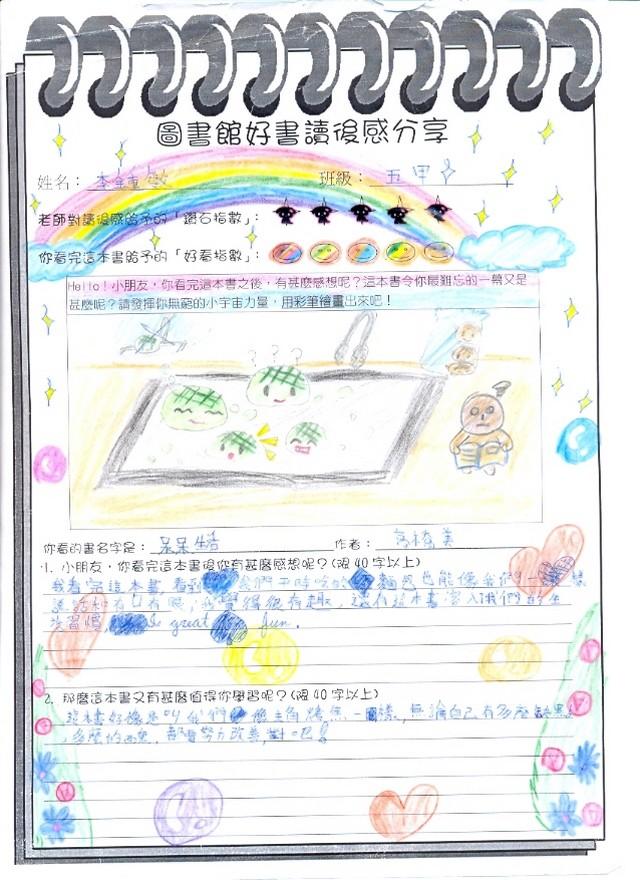 圖書館好書讀後感分享
姓名： 李 班級： 五甲
老師對讀後感給予的「鑽石指數」：
你看完這本書給予的「好看指數」：
Hello！小朋友，你看完這本書之後，有甚麼感想呢？這本書令你最難忘的一幕又是
甚麼呢？請發揮你無窮的小宇宙力量，用彩筆繪畫出來吧！
? ? ? ?
你看的書名字是： 呆呆生活 作者： 高橋美
1. 小朋友，你看完這本書後你有甚麼感想呢？(限 40 字以上)
我看完這本書，看到我們平時吃的麵包也能像我們一樣
說話和有口有眼，我覺得很有趣，還有這本書溶入我們的生
活習慣， great fun.
2. 那麼這本書又有甚麼值得你學習呢？(限 40 字以上)
這本書好像是叫我們像主角燒焦一樣，無論自己有多麼
多麼的，都會努力改善，對吧！